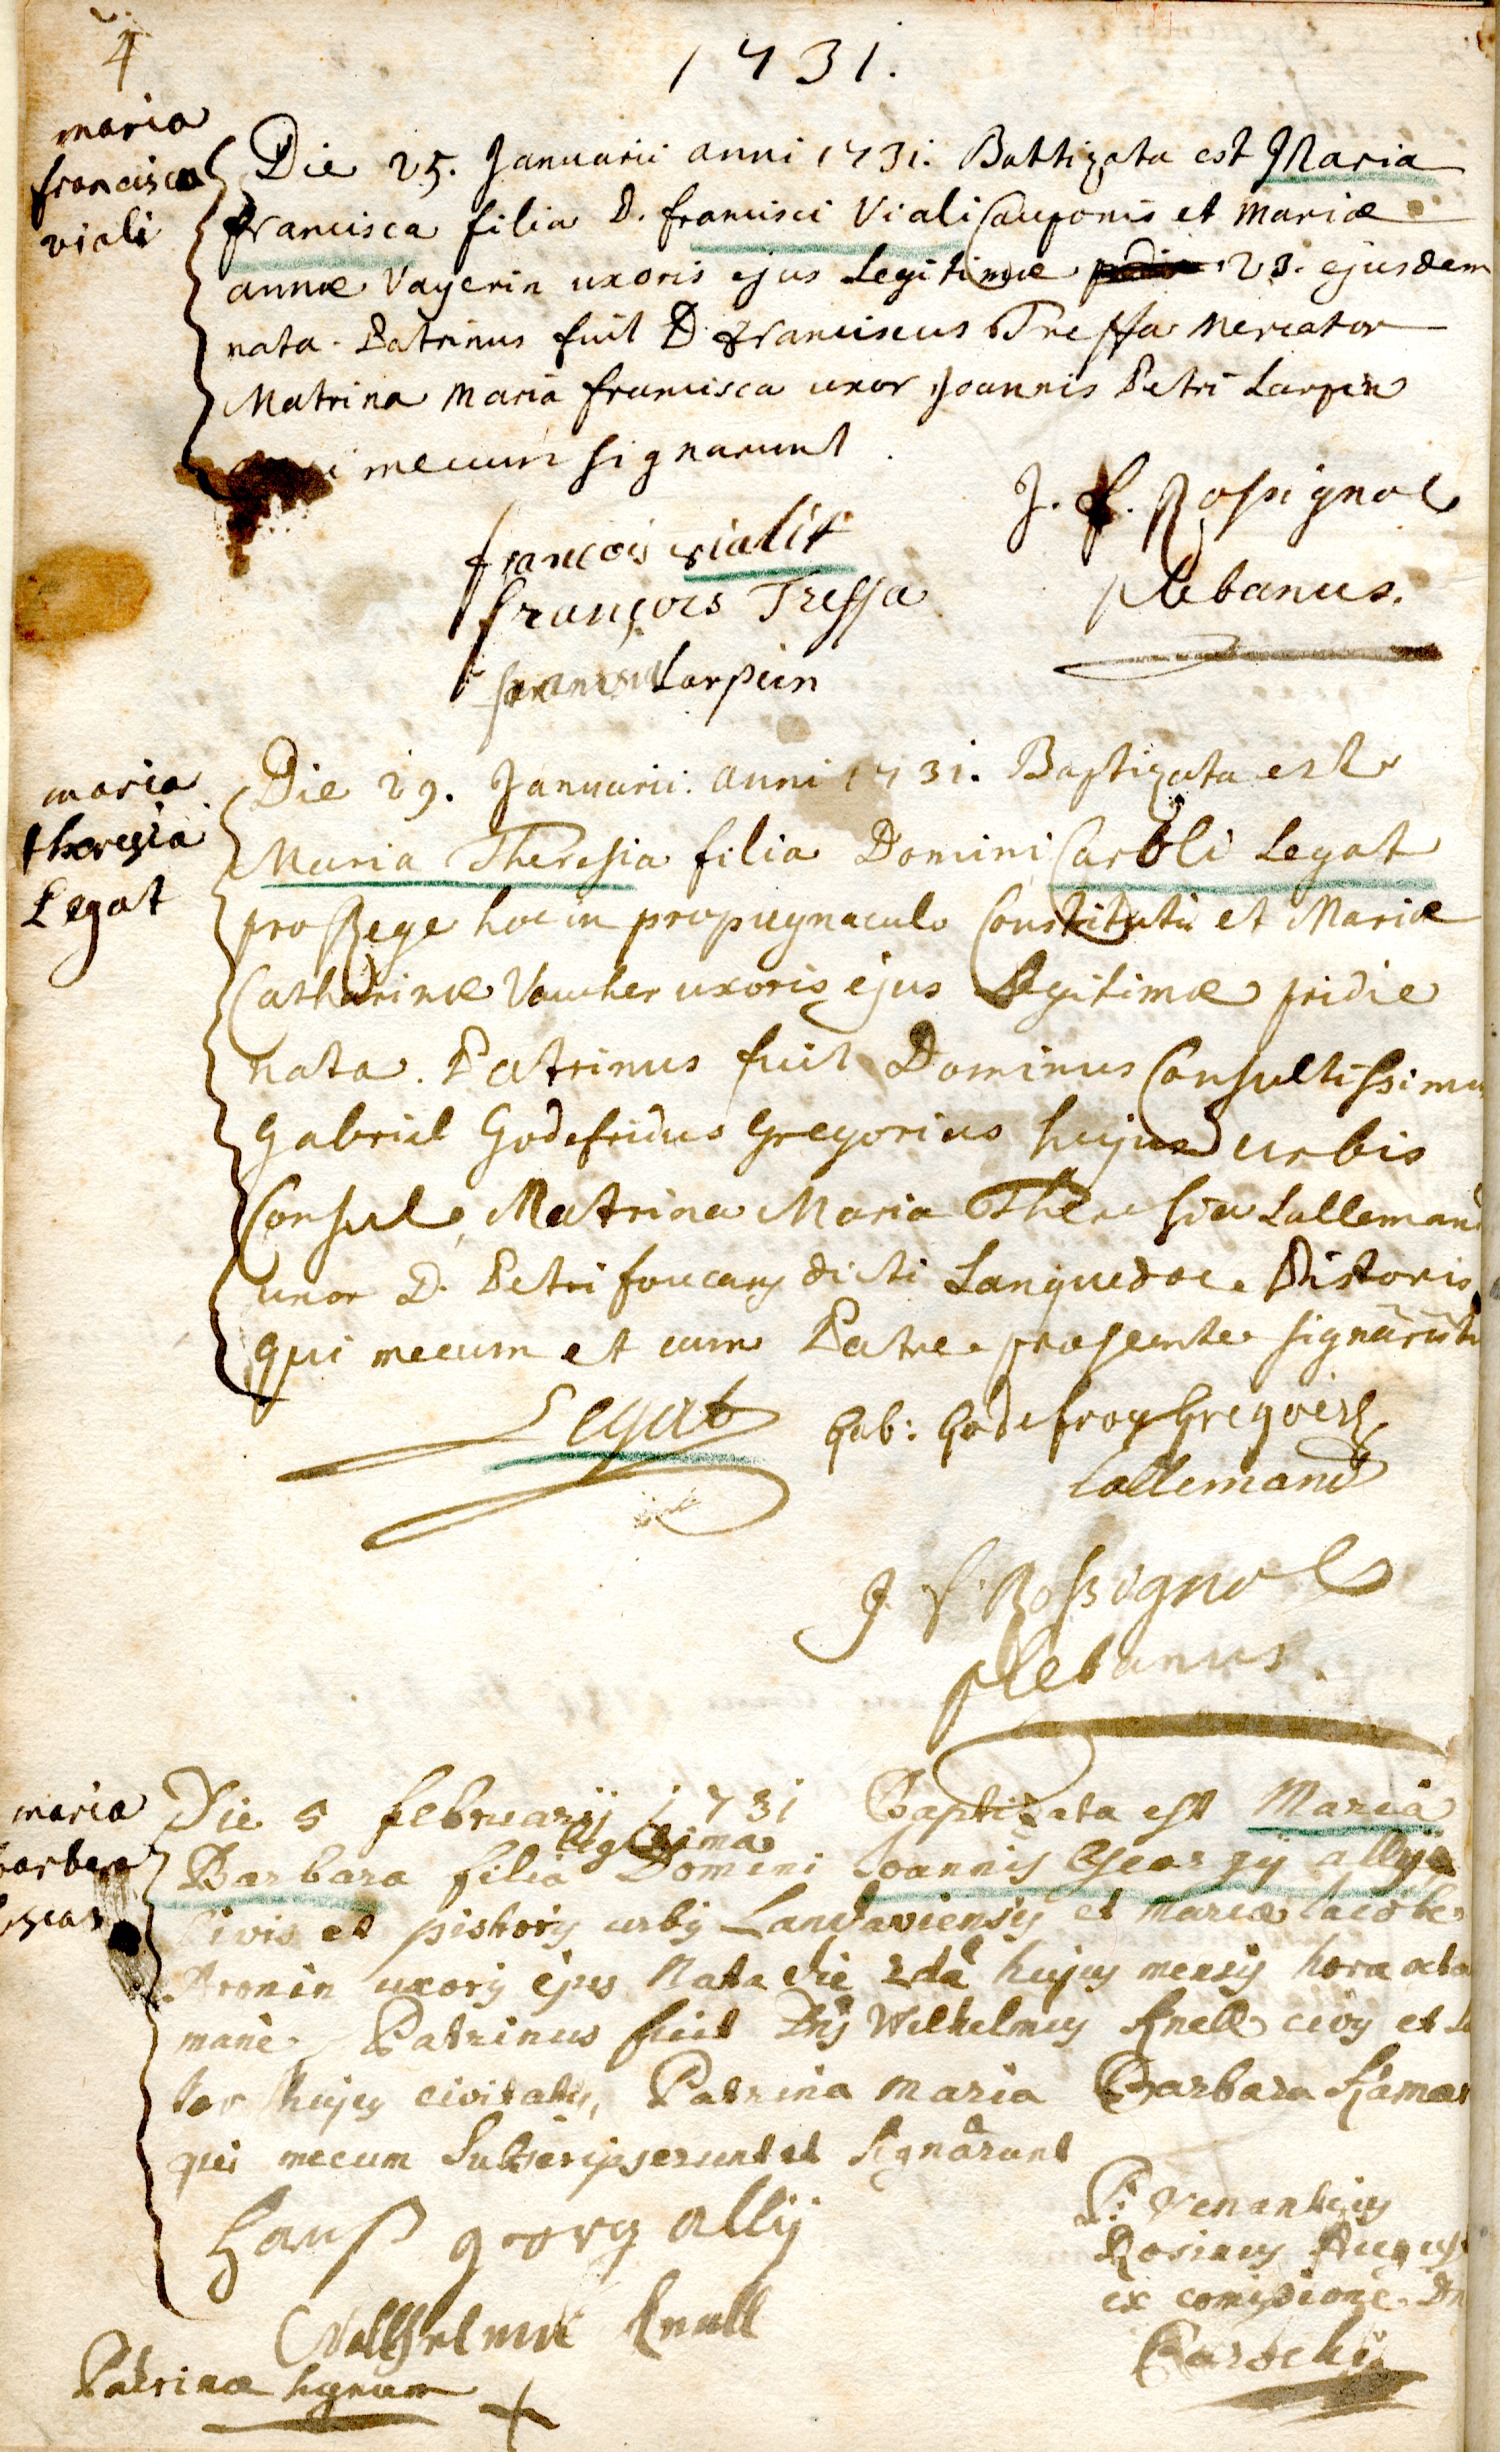 4
1731.
maria
francisca
viali
Die 25. Januarii anni 1731. Battizata est Maria
francisca filia D. francisci Viali Cauponis et Mariæ
annæ Vayerin uxoris ejus Legitimæ 23. ejusdem
nata. Patrinus fuit D. franciscus Treffa Mercator
Matrina Maria francisca uxor Joannis Petri Larpin
mecum signarunt.
J. f. Rossignol
plebanus.
francois vialit
françois Treffa
Larpin
maria
theresia
Legat
Die 29. Januarii anni 1731. Baptizata est
Maria Theresia filia Domini Caroli Legat
pro Rege hoc in propugnaculo Constituti et Mariæ
Catharinæ Vaucher uxoris ejus Legitimæ pridie
nata. Patrinus fuit Dominus Consultissimu
Gabriel Godefridus Gregorius hujus urbis
Consul, Matrina Maria Theresia Lallemand
uxor D. Petri foucary dicti Languedoc Pistoris
qui mecum et cum Patre præsente signârut
Legat
Gab: Godefroy Gregoire
Lallemand
J. f. Rossignol
plebanus.
maria
barbara
Die 5 februarij 1731 Baptizata est Maria
legitima
Barbara filia Domini Joannis Georgij allij
Civis et pistoris urbis Landaviensis et Mariæ Jacobe
Aronin uxoris ejus Nata die 2dâ hujus mensis hora octa
mane. Patrinus fuit Dns Wilhelmus Knell civis et
tor hujus civitatis, Patrina Maria Barbara
qui mecum Subscripserunt et signârunt
Hanß georg allij
Wilhelm Knell
Patrinæ signum +
P. Venantius
Rosinus August
ex comissione Dn
Parochi